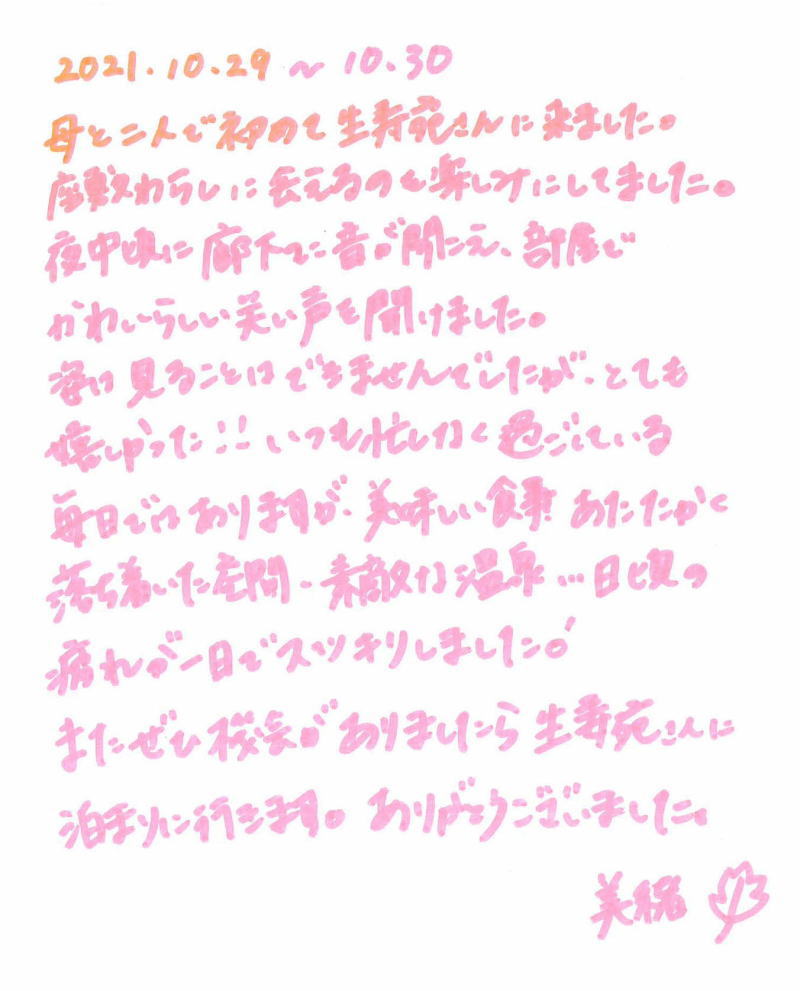 2021.10.29 ～ 10.30
母と二人で初めて生寿苑さんに来ました。
座敷わらしに会えるのを楽しみにしてました。
夜中頃に廊下で音が聞こえ、部屋で
かわいらしい笑い声を聞けました。
姿は見ることはできませんでしたが、とても
嬉しかった!! いつも忙しなく過ごしている
毎日ではありますが、美味しい食事 あたたかく
落ち着いた空間、素敵な温泉…日頃の
疲れが一日でスッキリしました。
またぜひ機会がありましたら生寿苑さんに
泊まりに行きます。ありがとうございました。
美緒